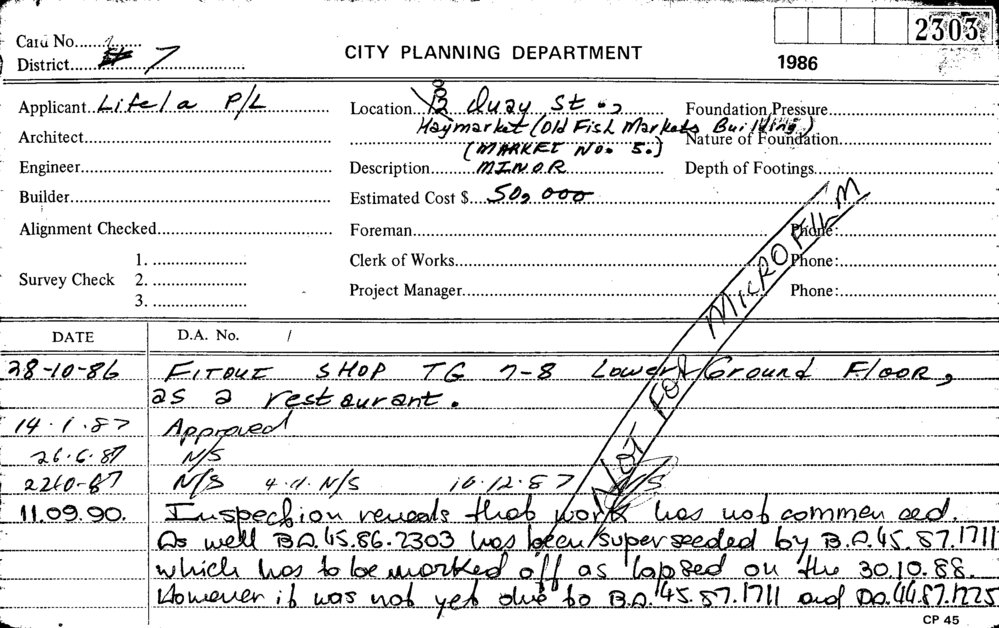 2303
Card No.
CITY PLANNING DEPARTMENT
District 7
1986
Applicant Lifela P/L
Location Quay St.,
Foundation Pressure
Haymarket (Old Fish Markets Building)
Architect
(MARKET No. 5.)
Nature of Foundation
Engineer
Description MINOR
Depth of Footings
Builder
Estimated Cost $ 50,000
Alignment Checked
Foreman
Phone:
Clerk of Works
Phone:
Survey Check
1.
2.
3.
Project Manager
Phone:
NOT FOR MICROFILM
DATE D.A. No. /
28-10-86 FITOUT SHOP TG 7-8 Lower Ground Floor,
as a restaurant.
14.1.87 Approved
26.6.87 N/S
22.10-87 N/S 4.11. N/S 10.12.87 N/S
11.09.90. Inspection reveals that work has not commenced.
As well B.A.45.86.2303 has been superseeded by B.A.45.87.1711
which has to be marked off as lapsed on the 30.10.88.
However it was not yet due to B.A.45.87.1711 and DA.44.87.1225
CP 45